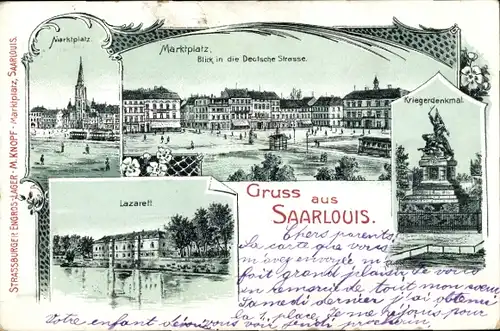 Marktplatz.
Marktplatz,
Blick in die Deutsche Strasse.
Kriegerdenkmal.
Lazarett
Gruss aus
SAARLOUIS.
STRASSBURGER ENGROS-LAGER · M. KNOPF · Marktplatz, SAARLOUIS.
Chers parents,
La carte que vous
m'avez envoyée m'a
fait grand plaisir, de voir
en remarque tout
Samedi dernier j'ai obtenu
la 1. place. Je me réjouis pour
Votre enfant dévoué vous